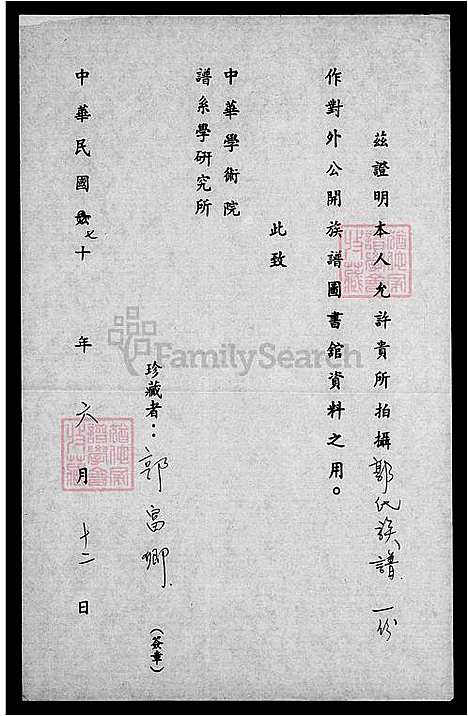 茲證明本人允許貴所拍攝郭氏族譜一份
作對外公開族譜圖書館資料之用。
此致
中華學術院
譜系學研究所
珍藏者：郭富卿（簽章）
中華民國七十年六月十二日
FamilySearch